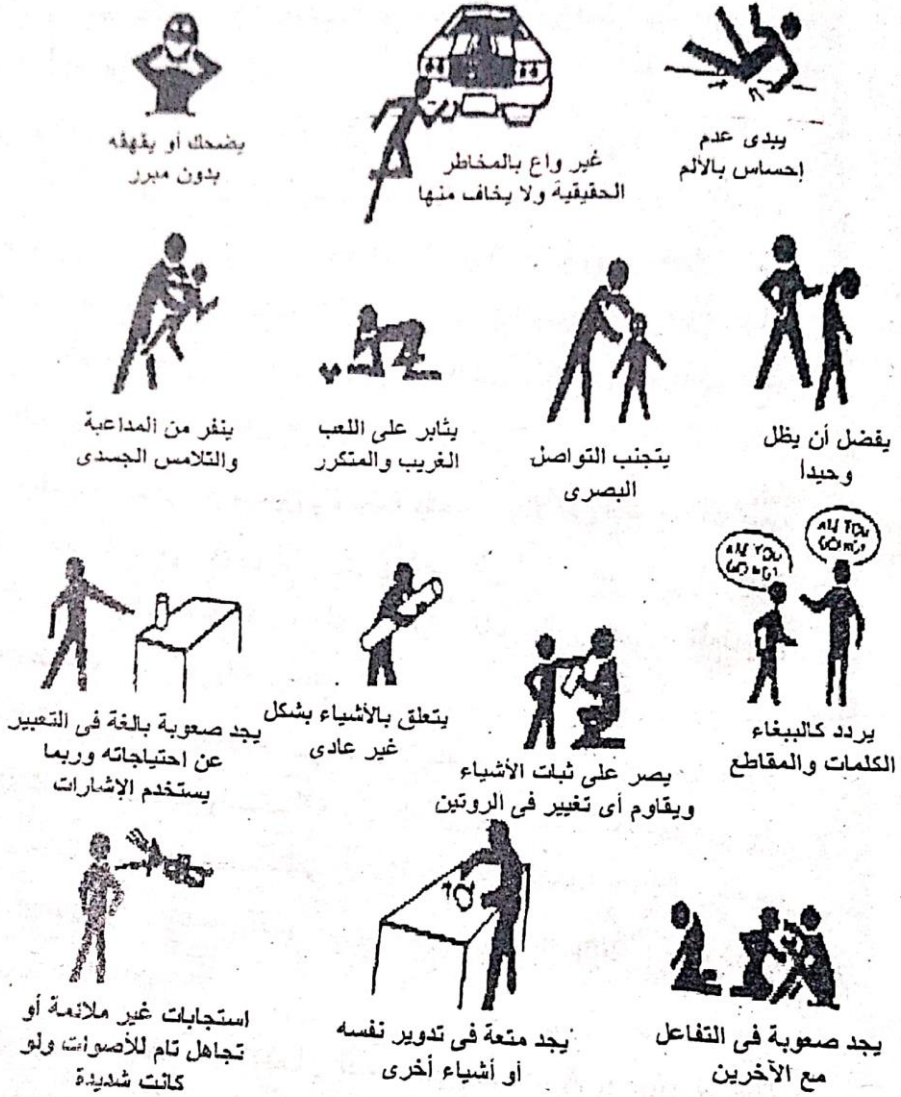 يبدى عدم
إحساس بالألم
غير واع بالمخاطر
الحقيقية ولا يخاف منها
يضحك أو يقهقه
بدون مبرر
يفضل أن يظل
وحيدا
يتجنب التواصل
البصرى
يثابر على اللعب
الغريب والمتكرر
ينفر من المداعبة
والتلامس الجسدى
يردد كالببغاء
الكلمات والمقاطع
يصر على ثبات الأشياء
ويقاوم أى تغيير فى الروتين
يتعلق بالأشياء بشكل
غير عادى
يجد صعوبة بالغة فى التعبير
عن احتياجاته وربما
يستخدم الإشارات
يجد صعوبة فى التفاعل
مع الآخرين
يجد متعة فى تدوير نفسه
أو أشياء أخرى
استجابات غير ملائمة أو
تجاهل تام للأصوات ولو
كانت شديدة